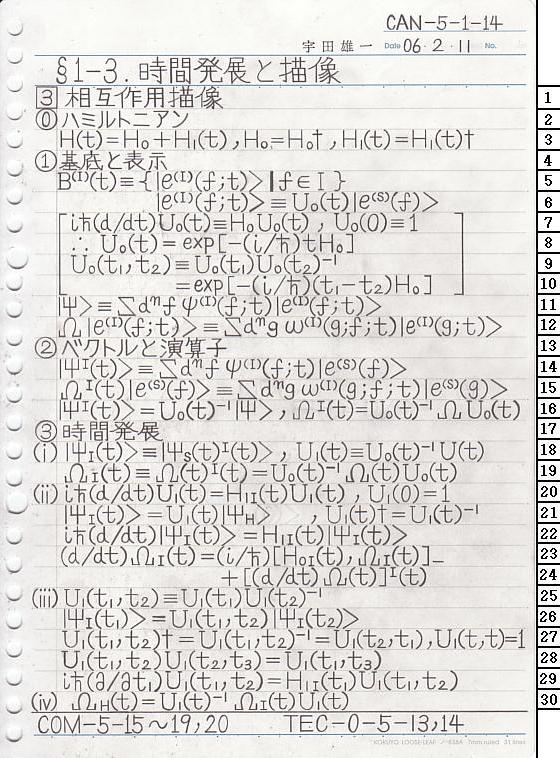 CAN-5-1-14
宇田雄一 Date 06・2・11 No.
§1-3. 時間発展と描像
3 相互作用描像
⓪ ハミルトニアン
H(t)=H₀+H₁(t), H₀=H₀†, H₁(t)=H₁(t)†
① 基底と表示
B⁽ᴵ⁾(t)≡{|e⁽ᴵ⁾(f;t)>|f∈I}
|e⁽ᴵ⁾(f;t)>≡U₀(t)|e⁽ˢ⁾(f)>
iħ(d/dt)U₀(t)≡H₀U₀(t), U₀(0)≡1
∴ U₀(t)=exp[-(i/ħ)tH₀]
U₀(t₁,t₂)≡U₀(t₁)U₀(t₂)⁻¹
=exp[-(i/ħ)(t₁-t₂)H₀]
|Ψ>≡∑dⁿf ψ⁽ᴵ⁾(f;t)|e⁽ᴵ⁾(f;t)>
Ω|e⁽ᴵ⁾(f;t)>≡∑dⁿg ω⁽ᴵ⁾(g;f;t)|e⁽ᴵ⁾(g;t)>
② ベクトルと演算子
|Ψ_I(t)>≡∑dⁿf ψ⁽ᴵ⁾(f;t)|e⁽ˢ⁾(f)>
Ω_I(t)|e⁽ˢ⁾(f)>≡∑dⁿg ω⁽ᴵ⁾(g;f;t)|e⁽ˢ⁾(g)>
|Ψ_I(t)>=U₀(t)⁻¹|Ψ>, Ω_I(t)=U₀(t)⁻¹ΩU₀(t)
③ 時間発展
(i) |Ψ_I(t)>≡|Ψ_S(t)ᴵ(t)>, U₁(t)≡U₀(t)⁻¹U(t)
Ω_I(t)≡Ω(t)ᴵ(t)=U₀(t)⁻¹Ω(t)U₀(t)
(ii) iħ(d/dt)U₁(t)=H₁_I(t)U₁(t), U₁(0)=1
|Ψ_I(t)>=U₁(t)|Ψ_H>, U₁(t)†=U₁(t)⁻¹
iħ(d/dt)|Ψ_I(t)>=H₁_I(t)|Ψ_I(t)>
(d/dt)Ω_I(t)=(i/ħ)[H₀_I(t),Ω_I(t)]₋
+[(d/dt)Ω(t)]ᴵ(t)
(iii) U₁(t₁,t₂)≡U₁(t₁)U₁(t₂)⁻¹
|Ψ_I(t₁)>=U₁(t₁,t₂)|Ψ_I(t₂)>
U₁(t₁,t₂)†=U₁(t₁,t₂)⁻¹=U₁(t₂,t₁), U₁(t,t)=1
U₁(t₁,t₂)U₁(t₂,t₃)=U₁(t₁,t₃)
iħ(∂/∂t₁)U₁(t₁,t₂)=H₁_I(t₁)U₁(t₁,t₂)
(iv) Ω_H(t)=U₁(t)⁻¹Ω_I(t)U₁(t)
COM-5-15~19,20 TEC-0-5-13,14
KOKUYO LOOSE-LEAF ノ-836A 7mm ruled 31 lines
1
2
3
4
5
6
7
8
9
10
11
12
13
14
15
16
17
18
19
20
21
22
23
24
25
26
27
28
29
30